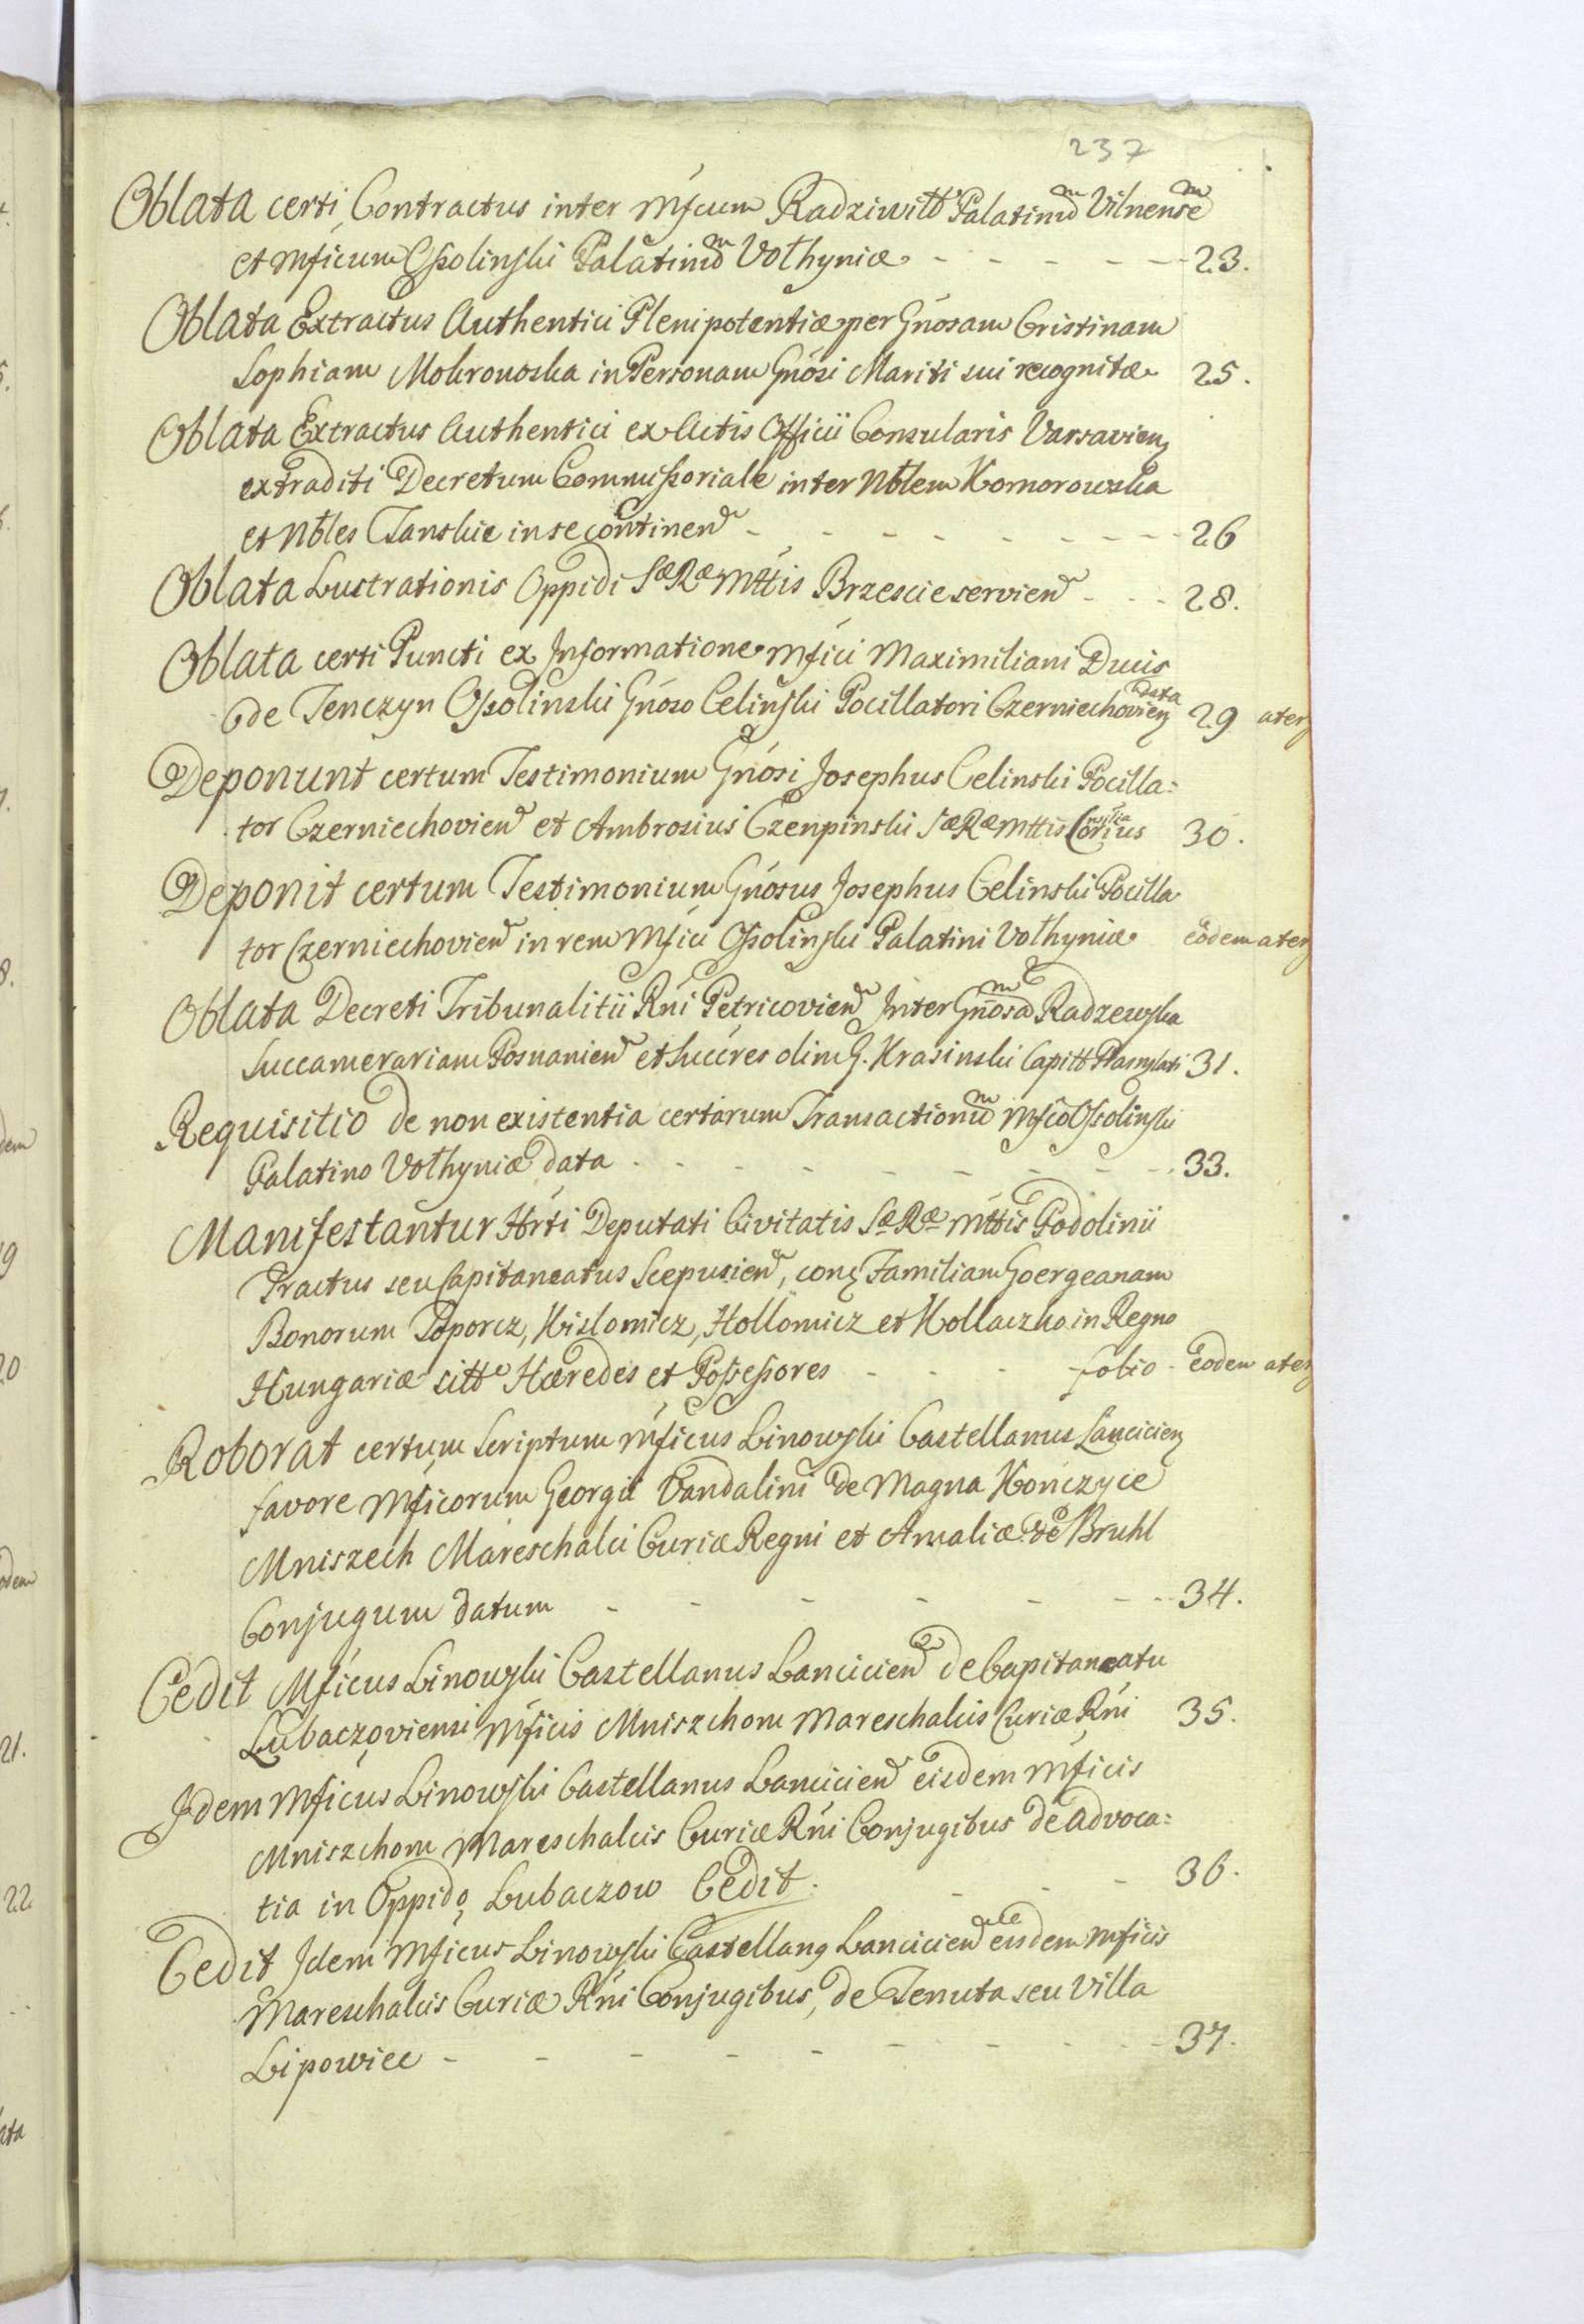 237
Oblata certi Contractus inter Mfcum Radziwiłł Palatinum Vilnensem
et Mficum Ossolinski Palatinum Volhyniæ - - - - - 23.
Oblata Extractus Authentici Plenipotentiæ per Gnosam Cristinam
Sophiam Mokronoska in Personam Gnosi Mariti sui recognitæ 25.
Oblata Extractus Authentici ex Actis Officii Consularis Varsavien
extraditi Decretum Commissoriale inter Nblem Komorowska
et Nbles Tanskie in se continen - - - - - - - 26
Oblata Lustrationis Oppidi Sæ Ræ Mttis Brzescie servien - - - 28.
Oblata certi Puncti ex Informatione Mfici Maximiliani Ducis
de Tenczyn Ossolinski Gnoso Celinski Pocillatori Czerniechovien data 29 aterg
Deponunt certum Testimonium Gnosi Josephus Celinski Pocilla:
tor Czerniechovien et Ambrosius Czenpinski Sæ Ræ Mttis 30.
Deponit certum Testimonium Gnosus Josephus Celinski Pocilla
tor Czerniechovien in rem Mfici Ossolinski Palatini Volhyniæ eodem aterg
Oblata Decreti Tribunalitii Rni Petricovien Inter Gnosam Radzewska
Succamerariam Posnanien et Succres olim G. Krasinski Capitt 31.
Requisitio de non existentia certarum Transactionum Mfico Ossolinski
Palatino Volhyniæ data - - - - - - - - 33.
Manifestantur Hrti Deputati Civitatis Sæ Ræ Mttis Podolinii
Tractus seu Capitaneatus Scepusien, con Familiam Goergeanam
Bonorum Toporcz, Kislomicz, Hollomicz et Hollaczko in Regno
Hungariæ sitt Hæredes et Possessores - - - folio - eodem aterg
Roborat certum Scriptum Mficus Linowski Castellanus Lancicien
favore Mficorum Georgii Vandalini de Magna Kończyce
Mniszech Mareschalci Curiæ Regni et Amaliæ de Bruhl
Conjugum datum - - - - - - - 34.
Cedit Mficus Linowski Castellanus Lancicien de Capitaneatu
Lubaczoviensi Mficis Mniszchom Mareschalcis Curiæ Rni 35.
Idem Mficus Linowski Castellanus Lancicien eisdem Mficis
Mniszchom Mareschalcis Curiæ Rni Conjugibus de advoca:
tia in Oppido Lubaczow Cedit. - - - 36.
Cedit Idem Mficus Linowski Castellang Lancicien eisdem Mficis
Mareschalcis Curiæ Rni Conjugibus, de Tenuta seu Villa
Lipowiec - - - - - - - - 37.